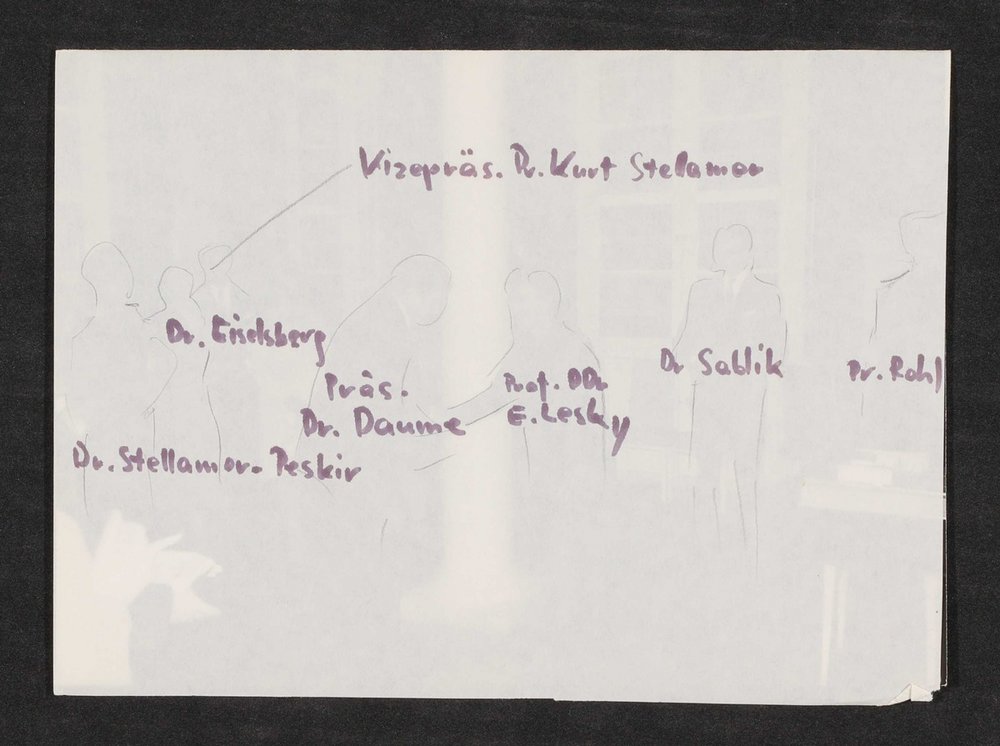 Vizepräs. Dr. Kurt Stellamor
Dr. Eiselsberg
Präs.
Dr. Daume
Prof. DDr.
E. Lesky
Dr Sablik
Dr. Stellamor-Peskir